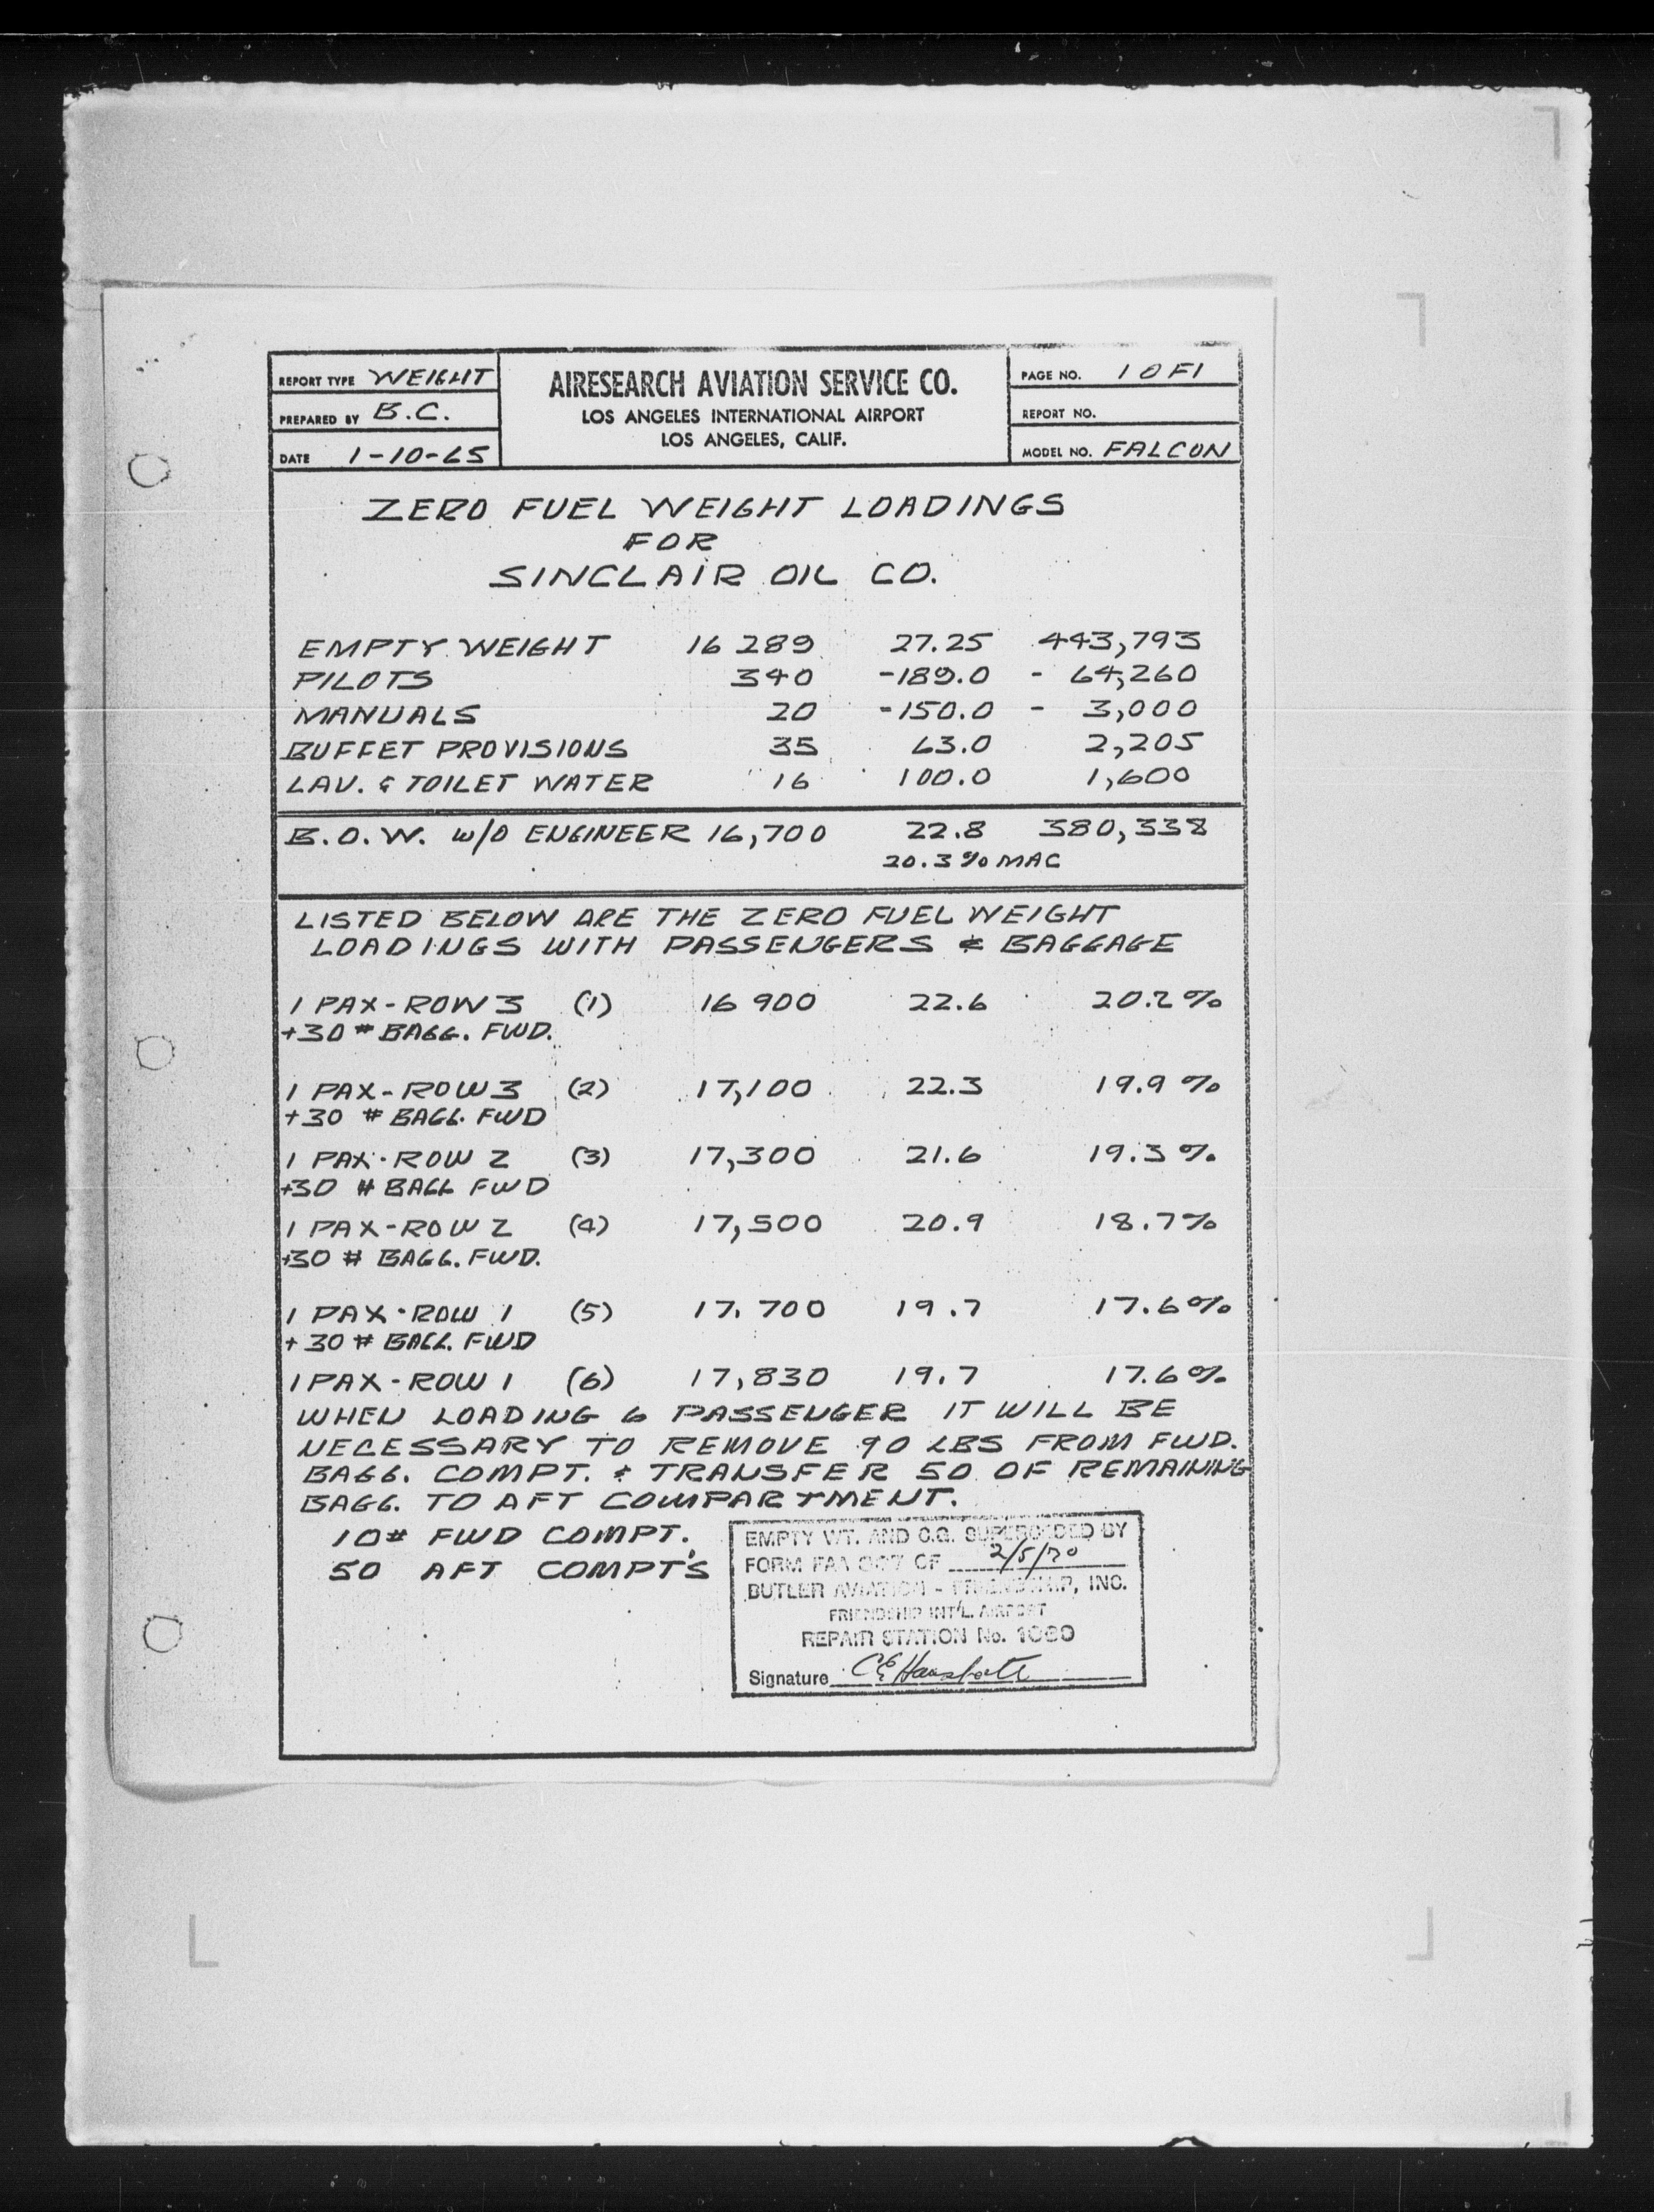 REPORT TYPE WEIGHT
PREPARED BY B.C.
DATE 1-10-65
AIRESEARCH AVIATION SERVICE CO.
LOS ANGELES INTERNATIONAL AIRPORT
LOS ANGELES, CALIF.
PAGE NO. 1 OF 1
REPORT NO.
MODEL NO. FALCON
ZERO FUEL WEIGHT LOADINGS
FOR
SINCLAIR OIL CO.
EMPTY WEIGHT 16 289 27.25 443,793
PILOTS 340 -189.0 - 64,260
MANUALS 20 -150.0 - 3,000
BUFFET PROVISIONS 35 63.0 2,205
LAV. & TOILET WATER 16 100.0 1,600
B.O.W. W/O ENGINEER 16,700 22.8 380,338
20.3 % MAC
LISTED BELOW ARE THE ZERO FUEL WEIGHT
LOADINGS WITH PASSENGERS & BAGGAGE
1 PAX-ROW 3 (1) 16 900 22.6 20.2%
+30 # BAGG. FWD.
1 PAX-ROW 3 (2) 17,100 22.3 19.9 %
+30 # BAGG. FWD
1 PAX-ROW 2 (3) 17,300 21.6 19.3 %
+30 # BAGG FWD
1 PAX-ROW 2 (4) 17,500 20.9 18.7%
+30 # BAGG. FWD.
1 PAX-ROW 1 (5) 17,700 19.7 17.6%
+30 # BAGG. FWD
1 PAX-ROW 1 (6) 17,830 19.7 17.6%
WHEN LOADING 6 PASSENGER IT WILL BE
NECESSARY TO REMOVE 90 LBS FROM FWD.
BAGG. COMPT. & TRANSFER 50 OF REMAINING
BAGG. TO AFT COMPARTMENT.
10# FWD COMPT.
50 AFT COMPT'S
EMPTY WT. AND C.G. SUPERCEDED BY
FORM FAA 337 OF 2/5/70
BUTLER AVIATION - FRIENDSHIP, INC.
FRIENDSHIP INT'L. AIRPORT
REPAIR STATION No.
Signature